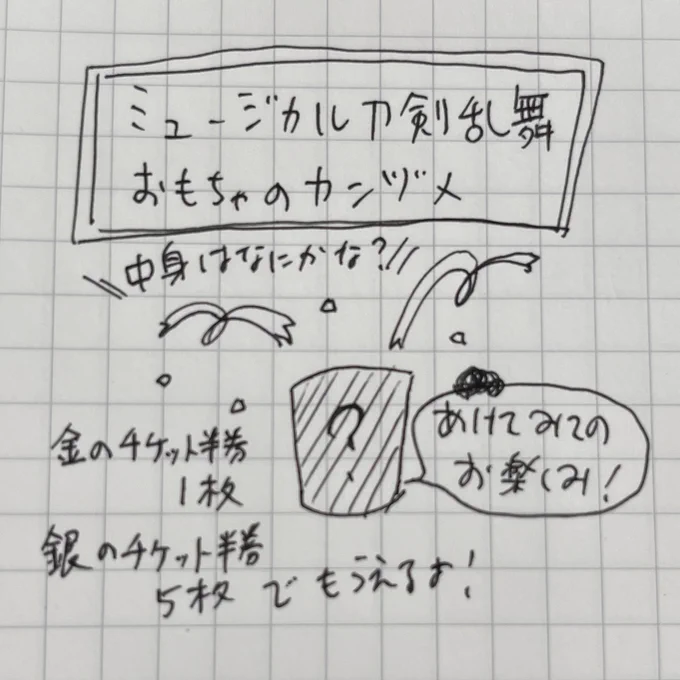 ミュージカル刀剣乱舞
おもちゃのカンヅメ
中身はなにかな?
?
あけてみての
お楽しみ!
金のチケット半券
1枚
銀のチケット半券
5枚でもらえるよ!